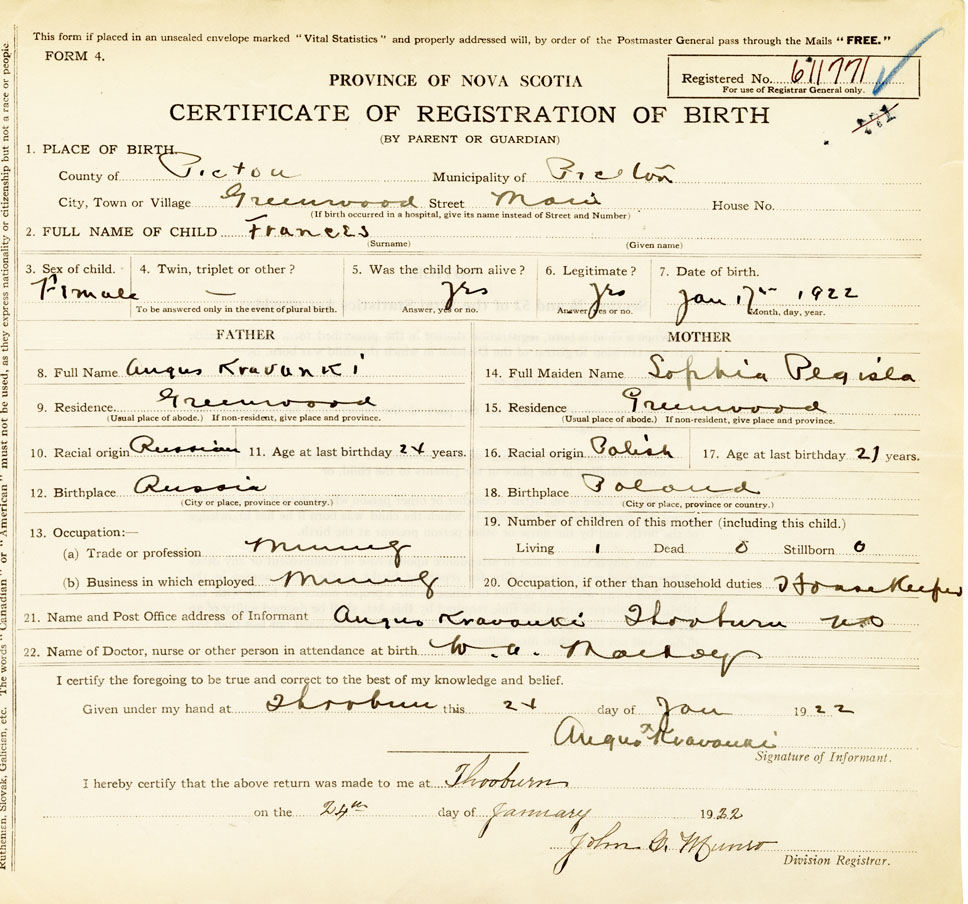 This form if placed in an unsealed envelope marked "Vital Statistics" and properly addressed will, by order of the Postmaster General pass through the Mails "FREE."
FORM 4.
PROVINCE OF NOVA SCOTIA
Registered No. 611771
For use of Registrar General only.
CERTIFICATE OF REGISTRATION OF BIRTH
(BY PARENT OR GUARDIAN)
1. PLACE OF BIRTH
County of Pictou Municipality of Pictou
City, Town or Village Greenwood Street Main House No.
(If birth occurred in a hospital, give its name instead of Street and Number)
2. FULL NAME OF CHILD Frances
(Surname) (Given name)
3. Sex of child. 4. Twin, triplet or other? 5. Was the child born alive? 6. Legitimate? 7. Date of birth.
Fimale — yrs yrs Jan 17th 1922
To be answered only in the event of plural birth. Answer, yes or no. Answer yes or no. Month, day, year.
FATHER
8. Full Name Angus Kravanki
9. Residence Greenwood
(Usual place of abode.) If non-resident, give place and province.
10. Racial origin Russian 11. Age at last birthday 24 years.
12. Birthplace Russia
(City or place, province or country.)
13. Occupation:—
(a) Trade or profession Mining
(b) Business in which employed Mining
MOTHER
14. Full Maiden Name Sophia Pegisla
15. Residence Greenwood
(Usual place of abode.) If non-resident, give place and province.
16. Racial origin Polish 17. Age at last birthday 21 years.
18. Birthplace Poland
(City or place, province or country.)
19. Number of children of this mother (including this child.)
Living 1 Dead 0 Stillborn 0
20. Occupation, if other than household duties Housekeeper
21. Name and Post Office address of Informant Angus Kravanki Thorburn NS
22. Name of Doctor, nurse or other person in attendance at birth W. A. MacKay
I certify the foregoing to be true and correct to the best of my knowledge and belief.
Given under my hand at Thorburn this 24 day of Jan 1922
Angus x Kravanki
Signature of Informant.
I hereby certify that the above return was made to me at Thorburn
on the 24th day of January 1922
John D. Munro
Division Registrar.
Ruthenian, Slovak, Galician, etc. The words "Canadian" or "American" must not be used, as they express nationality or citizenship but not a race or people.